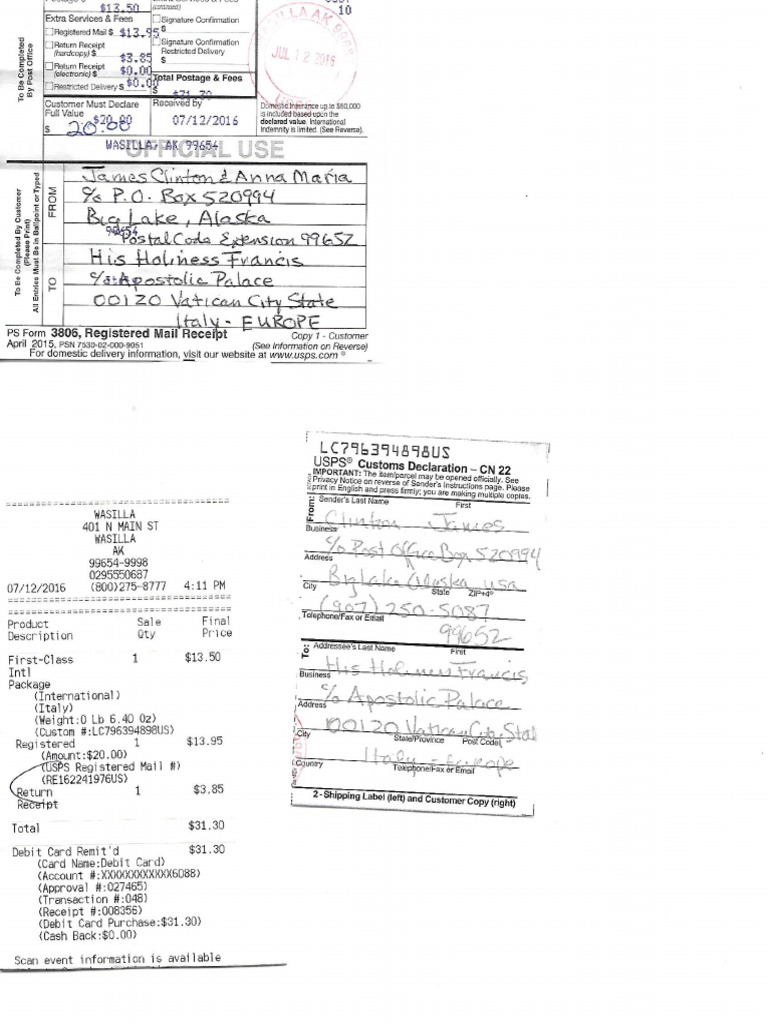 $13.50
10
Extra Services & Fees (continued)
Registered Mail $ $13.95
Signature Confirmation
$
Return Receipt
(hardcopy) $ $3.85
Signature Confirmation
Restricted Delivery
$
Return Receipt
(electronic) $ $0.00
Restricted Delivery $ $0.00
Total Postage & Fees
$ $31.30
To Be Completed
By Post Office
WASILLA AK
JUL 12 2016
USPS
Customer Must Declare
Full Value $20.00
$ 20.00
Received by
07/12/2016
Domestic Insurance up to $50,000
is included based upon the
declared value. International
Indemnity is limited. (See Reverse).
WASILLA, AK 99654
OFFICIAL USE
To Be Completed By Customer
(Please Print)
All Entries Must Be in Ballpoint or Typed
FROM
James Clinton & Anna Maria
c/o P.O. Box 520994
Big Lake, Alaska
99654
Postal Code Extension 99652
TO
His Holiness Francis
c/o Apostolic Palace
00120 Vatican City State
Italy - EUROPE
PS Form 3806, Registered Mail Receipt
Copy 1 - Customer
April 2015, PSN 7530-02-000-9051
(See Information on Reverse)
For domestic delivery information, visit our website at www.usps.com ®
LC796394898US
USPS® Customs Declaration – CN 22
IMPORTANT: The item/parcel may be opened officially. See
Privacy Notice on reverse of Sender's Instructions page. Please
print in English and press firmly; you are making multiple copies.
From:
Sender's Last Name First
Clinton James
Business
c/o Post Office Box 520994
Address
Big Lake Alaska USA
City State ZIP+4®
(907) 250-5087
Telephone/Fax or Email
99652
To:
Addressee's Last Name First
His Holiness Francis
Business
c/o Apostolic Palace
Address
00120 Vatican City Stat
City State/Province Post Code
Italy - Europe
Country Telephone/Fax or Email
2 - Shipping Label (left) and Customer Copy (right)
WASILLA
401 N MAIN ST
WASILLA
AK
99654-9998
0295550687
07/12/2016 (800)275-8777 4:11 PM
Product Sale Final
Description Qty Price
First-Class 1 $13.50
Intl
Package
(International)
(Italy)
(Weight:0 Lb 6.40 Oz)
(Custom #:LC796394898US)
Registered 1 $13.95
(Amount:$20.00)
(USPS Registered Mail #)
(RE162241976US)
Return 1 $3.85
Receipt
Total $31.30
Debit Card Remit'd $31.30
(Card Name:Debit Card)
(Account #:XXXXXXXXXXXX6088)
(Approval #:027465)
(Transaction #:048)
(Receipt #:008356)
(Debit Card Purchase:$31.30)
(Cash Back:$0.00)
Scan event information is available